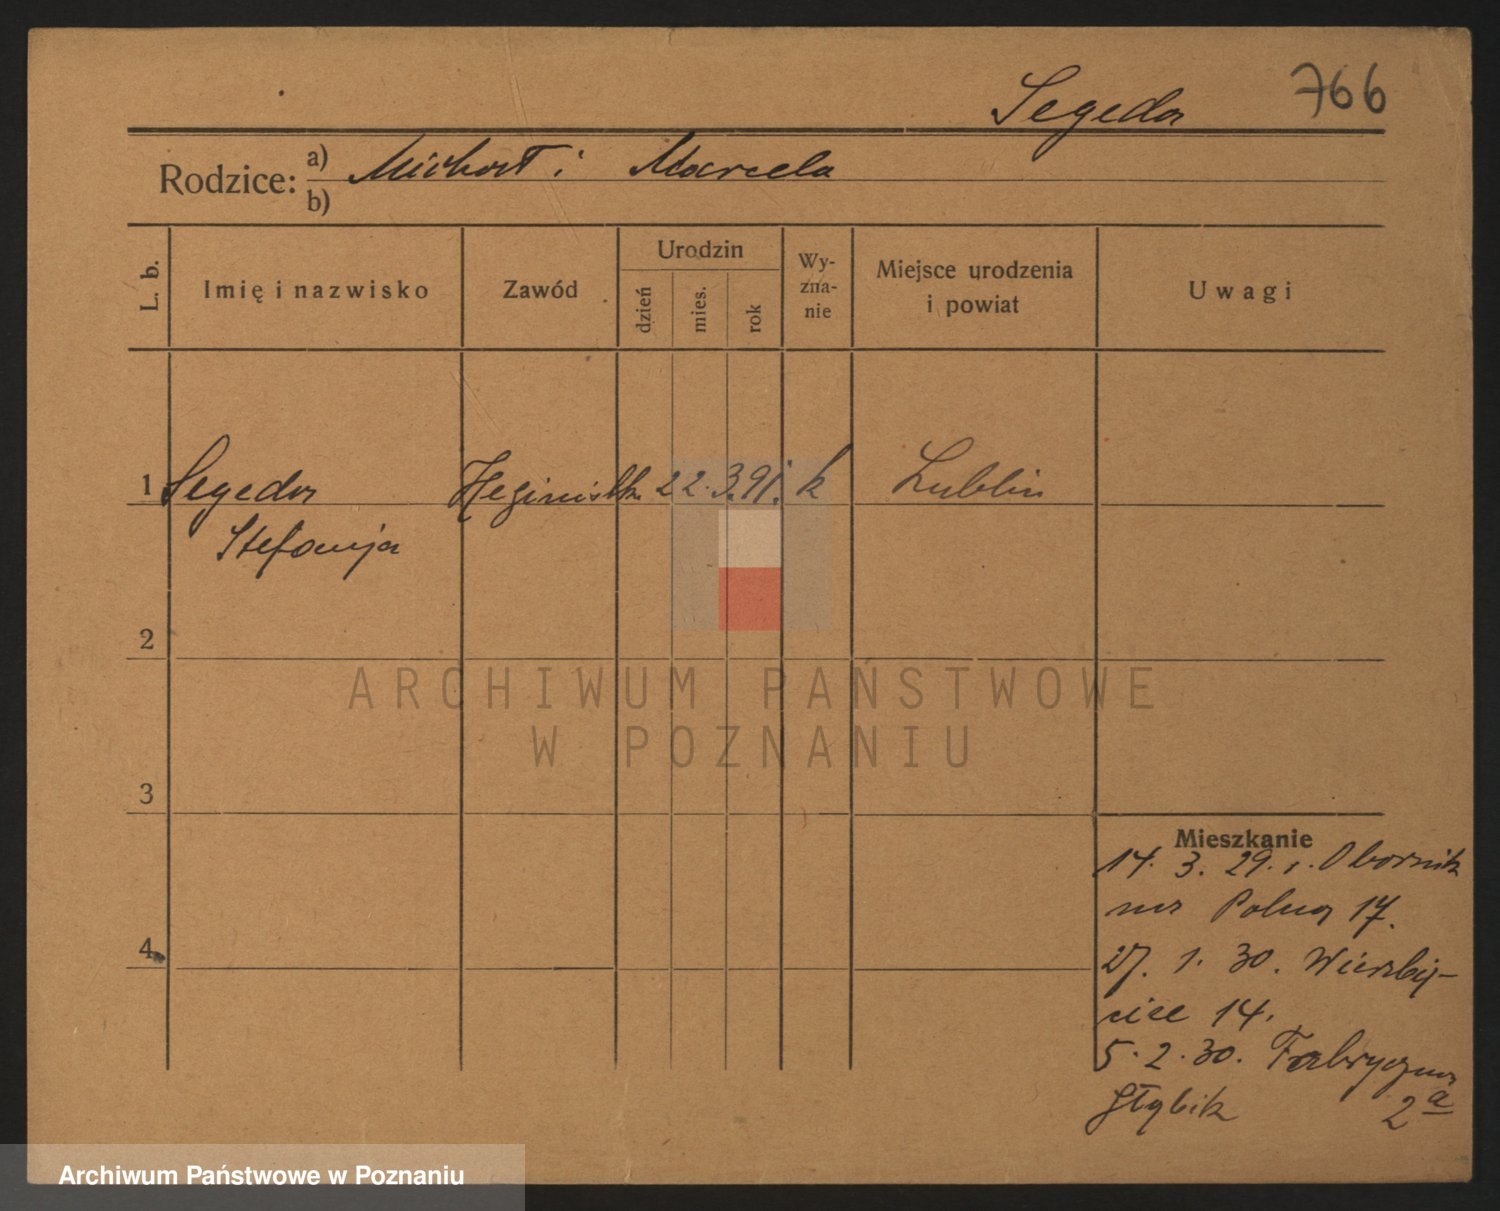 Segeda 766
Rodzice: a) Michał i Marcela
b)
L. b.
Imię i nazwisko
Zawód
Urodzin
dzień
mies.
rok
Wy-
zna-
nie
Miejsce urodzenia
i powiat
Uwagi
1 Segeda 22. 3. 91. k Lublin
Stefanja
2
3
4
ARCHIWUM PAŃSTWOWE
W POZNANIU
Mieszkanie
14. 3. 29. r. Obornik
na Polna 17.
27. 1. 30. Wierzbię-
cice 14.
5. 2. 30. Fabryczna
2a
Archiwum Państwowe w Poznaniu